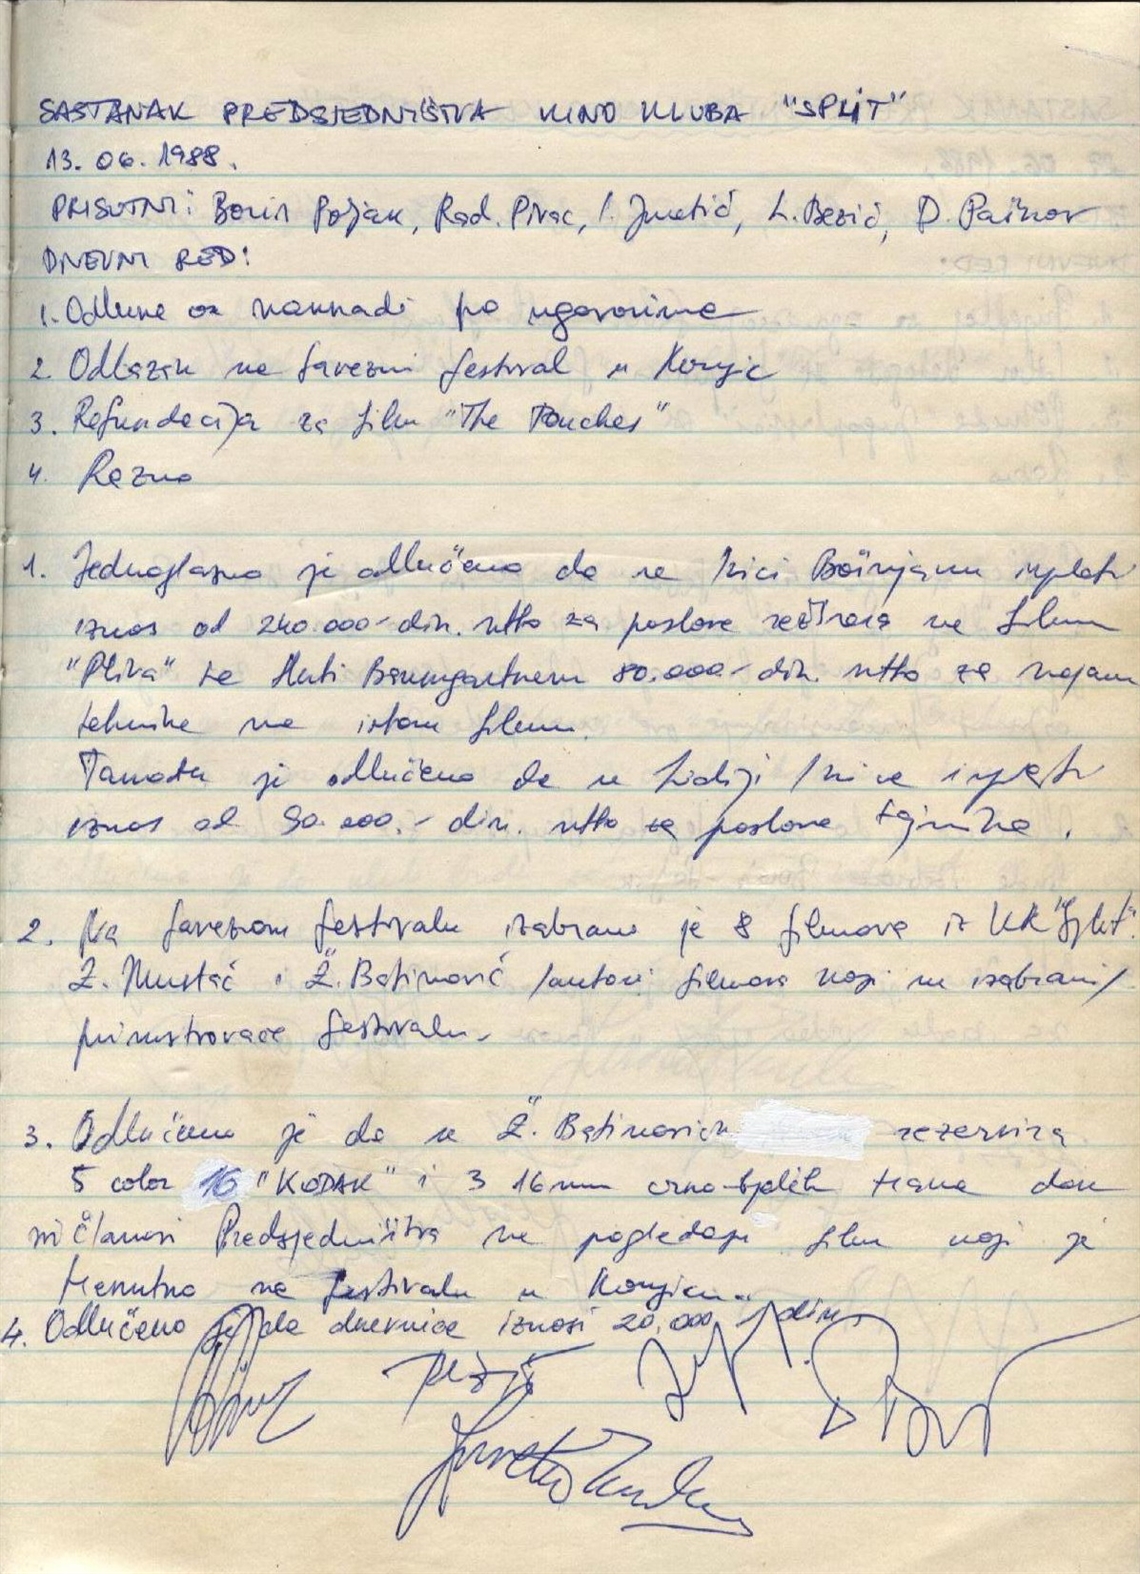 SASTANAK PREDSJEDNIŠTVA KINO KLUBA "SPLIT"
13. 06. 1988.
PRISUTNI: Boris Poljak, Rad. Pivac, I. Jmetić, L. Bezić, D. Pažnov
DNEVNI RED:
1. Odluke o naknadi po ugovorima
2. Odlazak na savezni festival u Konjic
3. Refundacija za film "The Touches"
4. Razno
1. Jednoglasno je odlučeno da se Kići Bošnjaku isplati
iznos od 240.000.- din. netto za poslove režisera na filmu
"Pliva" te Baumgartneru 80.000.- din. netto za najam
tehnike na istom filmu.
je odlučeno da se Lidiji isplati
iznos od 90.000.- din. netto za poslove tajnika.
2. Na Saveznom festivalu izabrano je 8 filmova iz KK "Split".
Ž. Mustać i Ž. Batinović /autori filmova koji su izabrani/
prisustvovaće festivalu.
3. Odlučeno je da se Ž. Batinoviću rezervira
5 color 16 "KODAK" i 3 16mm crno-bijelih traka dok
svi članovi Predsjedništva ne pogledaju film koji je
trenutno na festivalu u Konjicu.
4. Odlučeno je da dnevnice iznosi 20.000.- din.